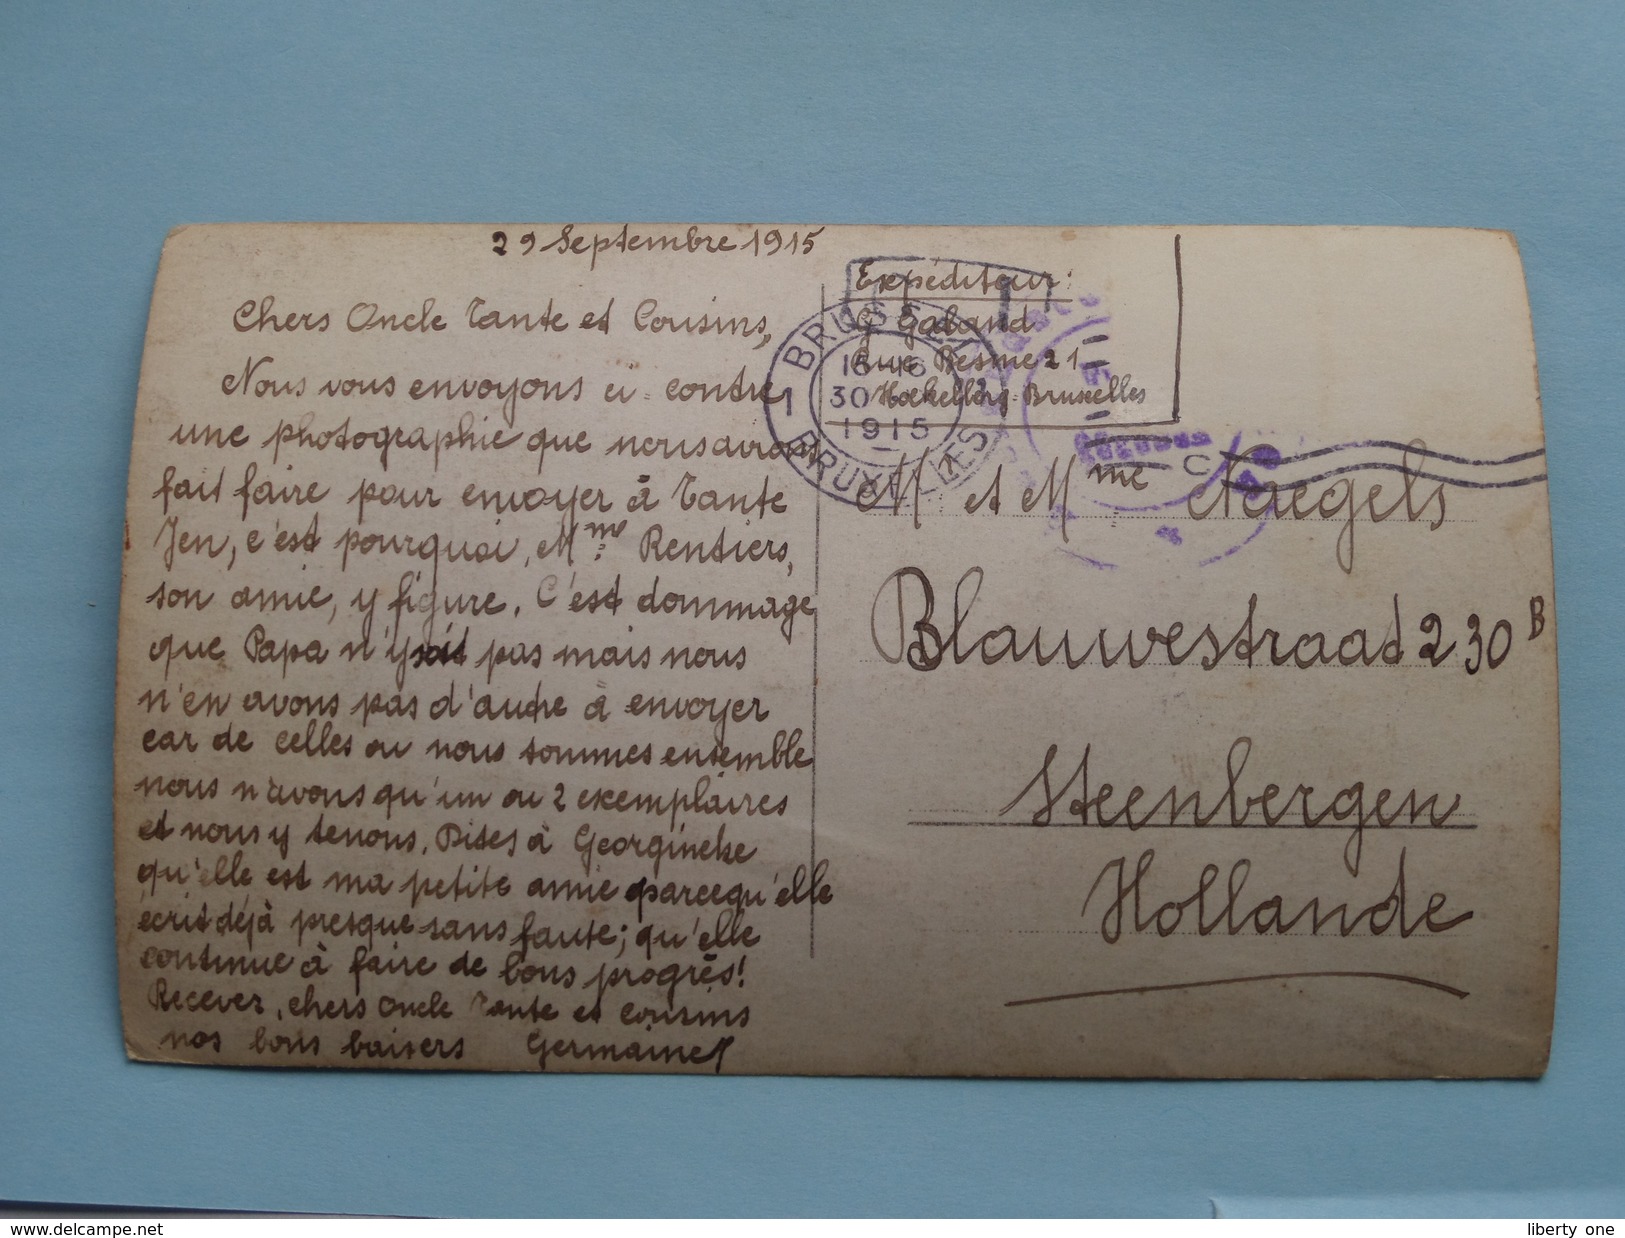 29 Septembre 1915
Chers Oncle Tante et Cousins,
Nous vous envoyons ci-contre
une photographie que nous avons
fait faire pour envoyer à Tante
Jen, c'est pourquoi, Mme Rentiers,
son amie, y figure. C'est dommage
que Papa n'y soit pas mais nous
n'en avons pas d'autre à envoyer
car de celles ou nous sommes ensemble
nous n'avons qu'un ou 2 exemplaires
et nous y tenons. Dites à Georgineke
qu'elle est ma petite amie parcequ'elle
écrit déjà presque sans faute; qu'elle
continue à faire de bons progrès!
Recever, chers Oncle Tante et cousins
nos bons baisers Germaine
Expéditeur:
G. Galand
Rue Besme 21
Koekelberg-Bruxelles
BRUSSEL
1
30
1915
BRUXELLES
M et Mme Naegels
Blauwestraat 230 B
Steenbergen
Hollande
delcampe.net
liberty one